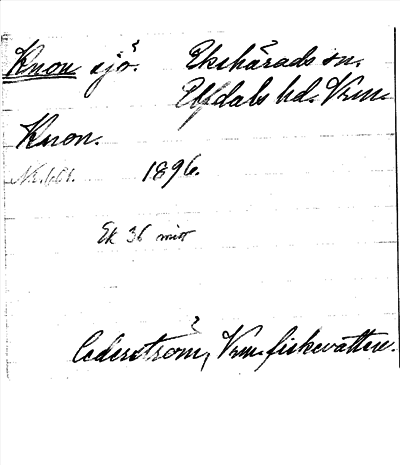 Knon sjö. Ekshärads sn.
Elfdals hd. Vrm.
Knon.
1896.
Ek 36
Cederström, Vrm. fiskevatten.